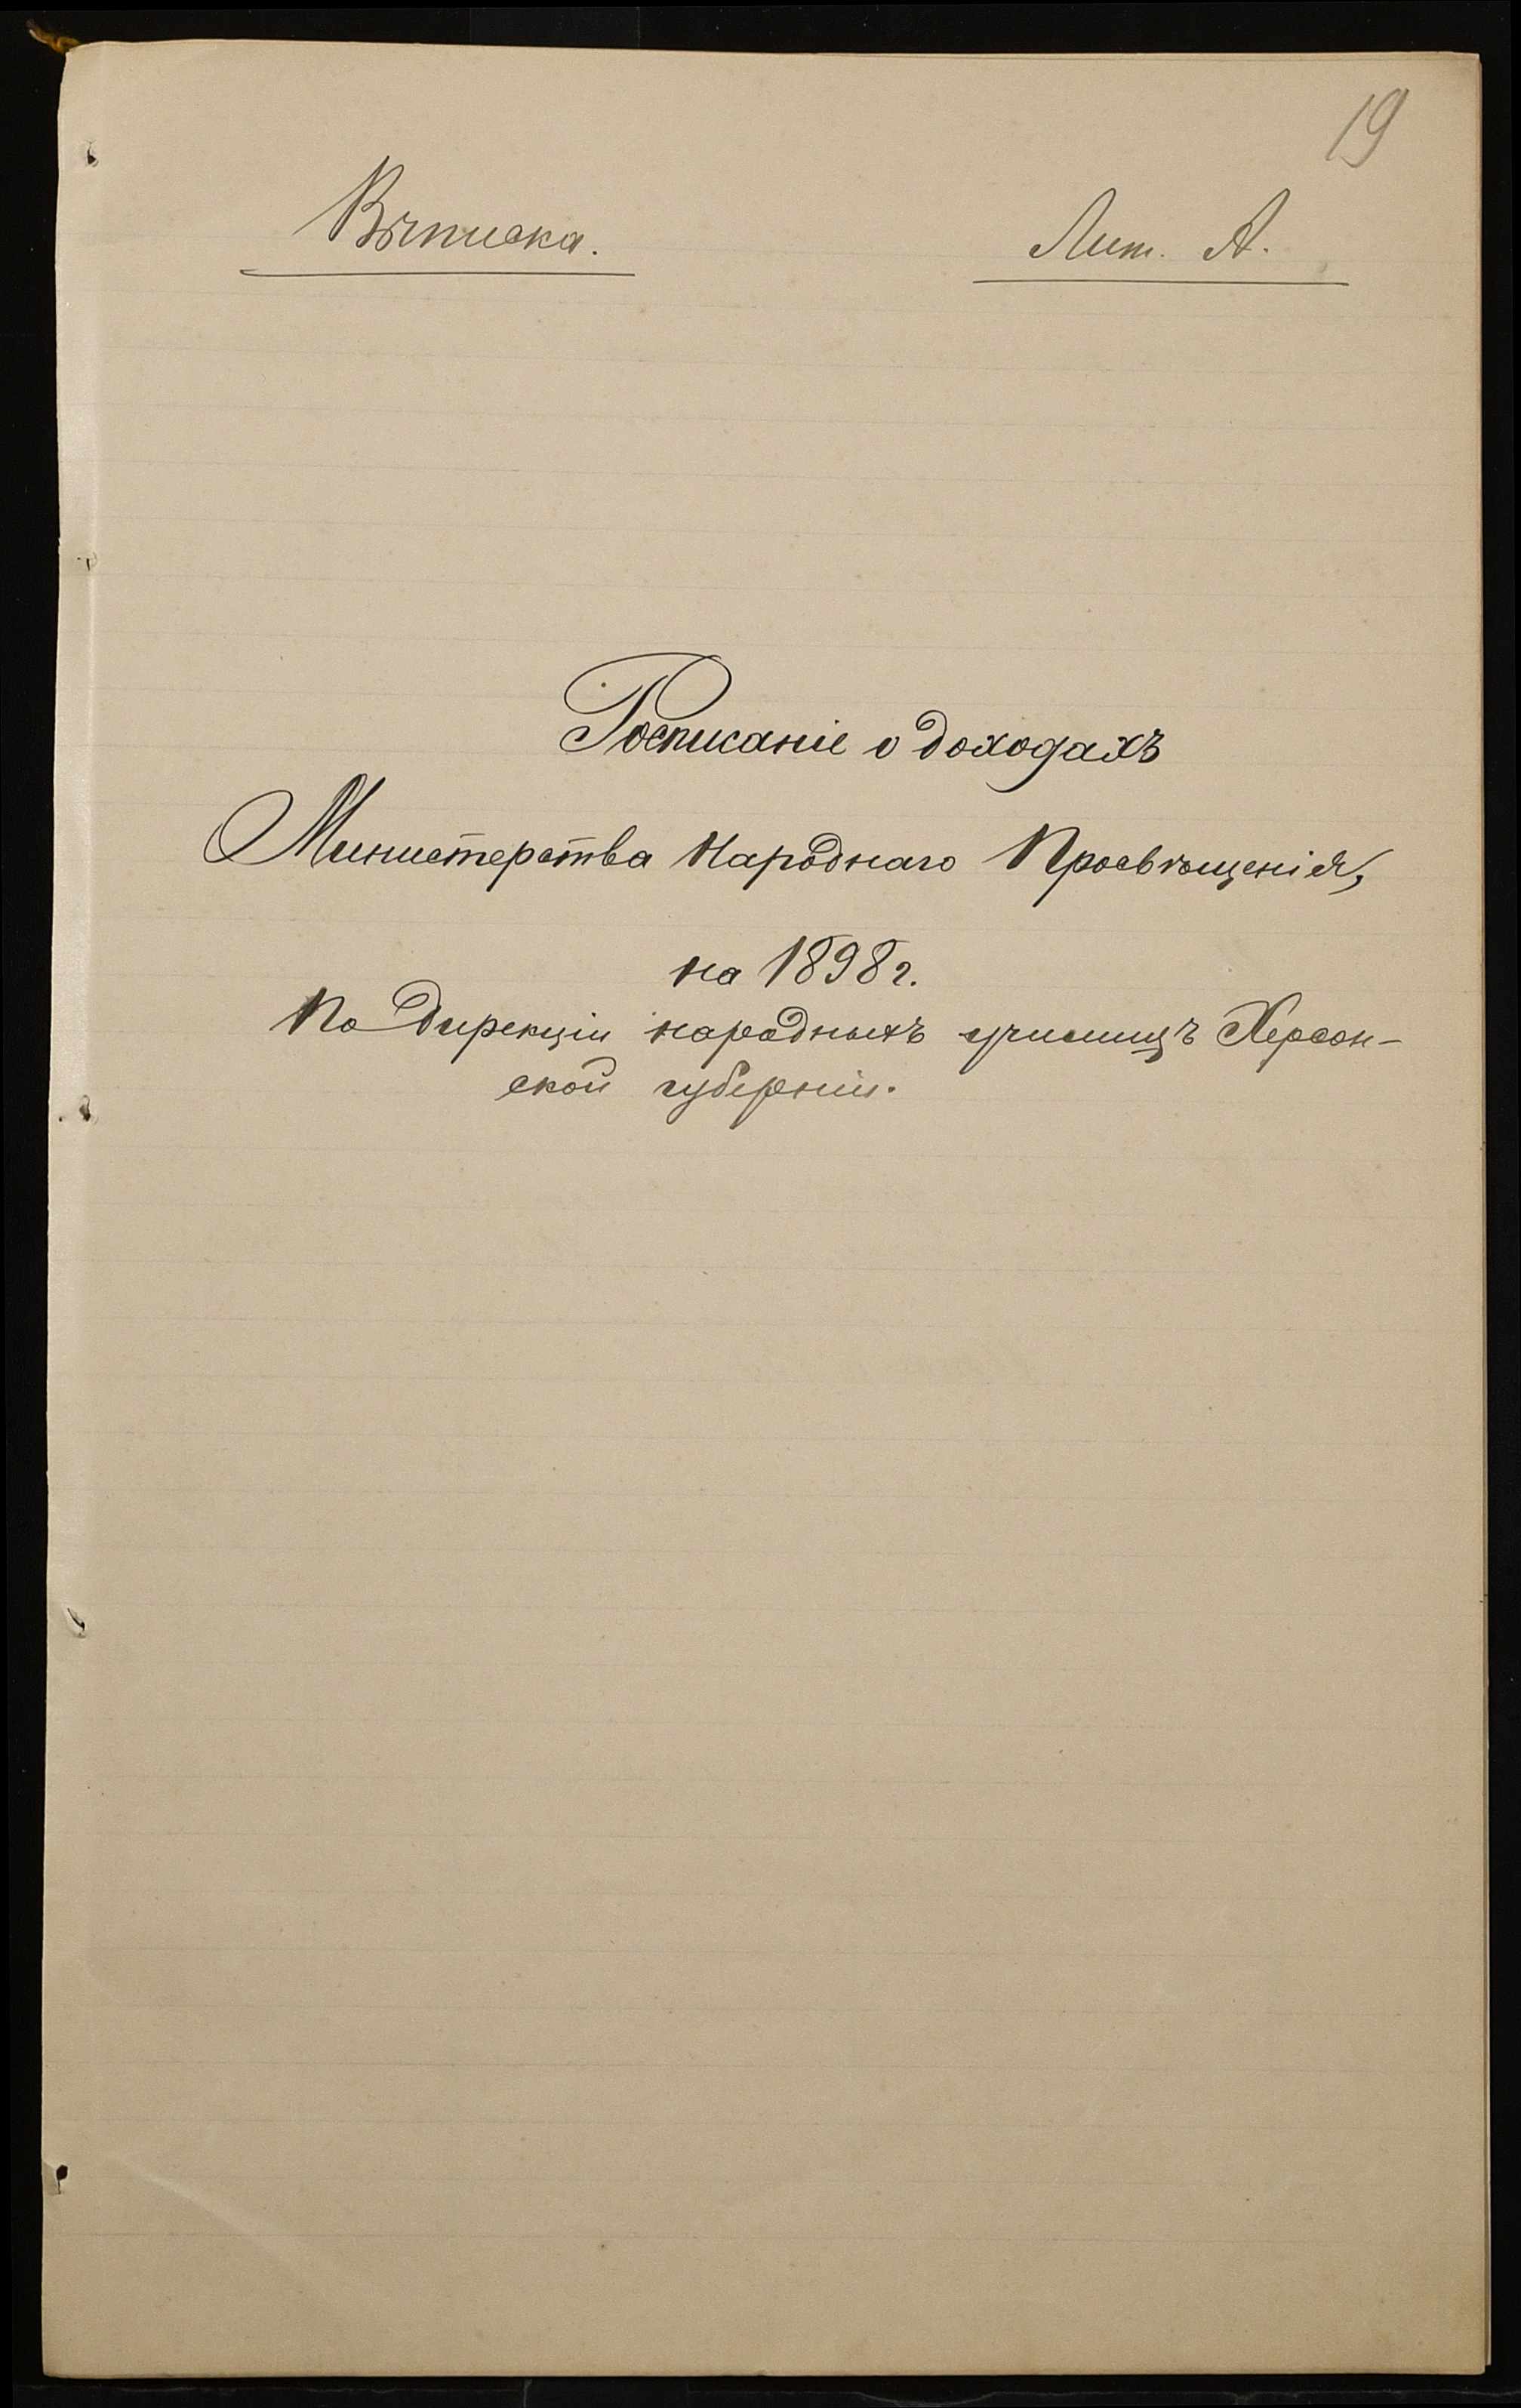 19
Выписка.
Лит. А.
Росписаніе о доходахъ
Министерства Народнаго Просвѣщенія,
на 1898 г.
По Дирекціи народныхъ училищъ Херсон-
ской губерніи.